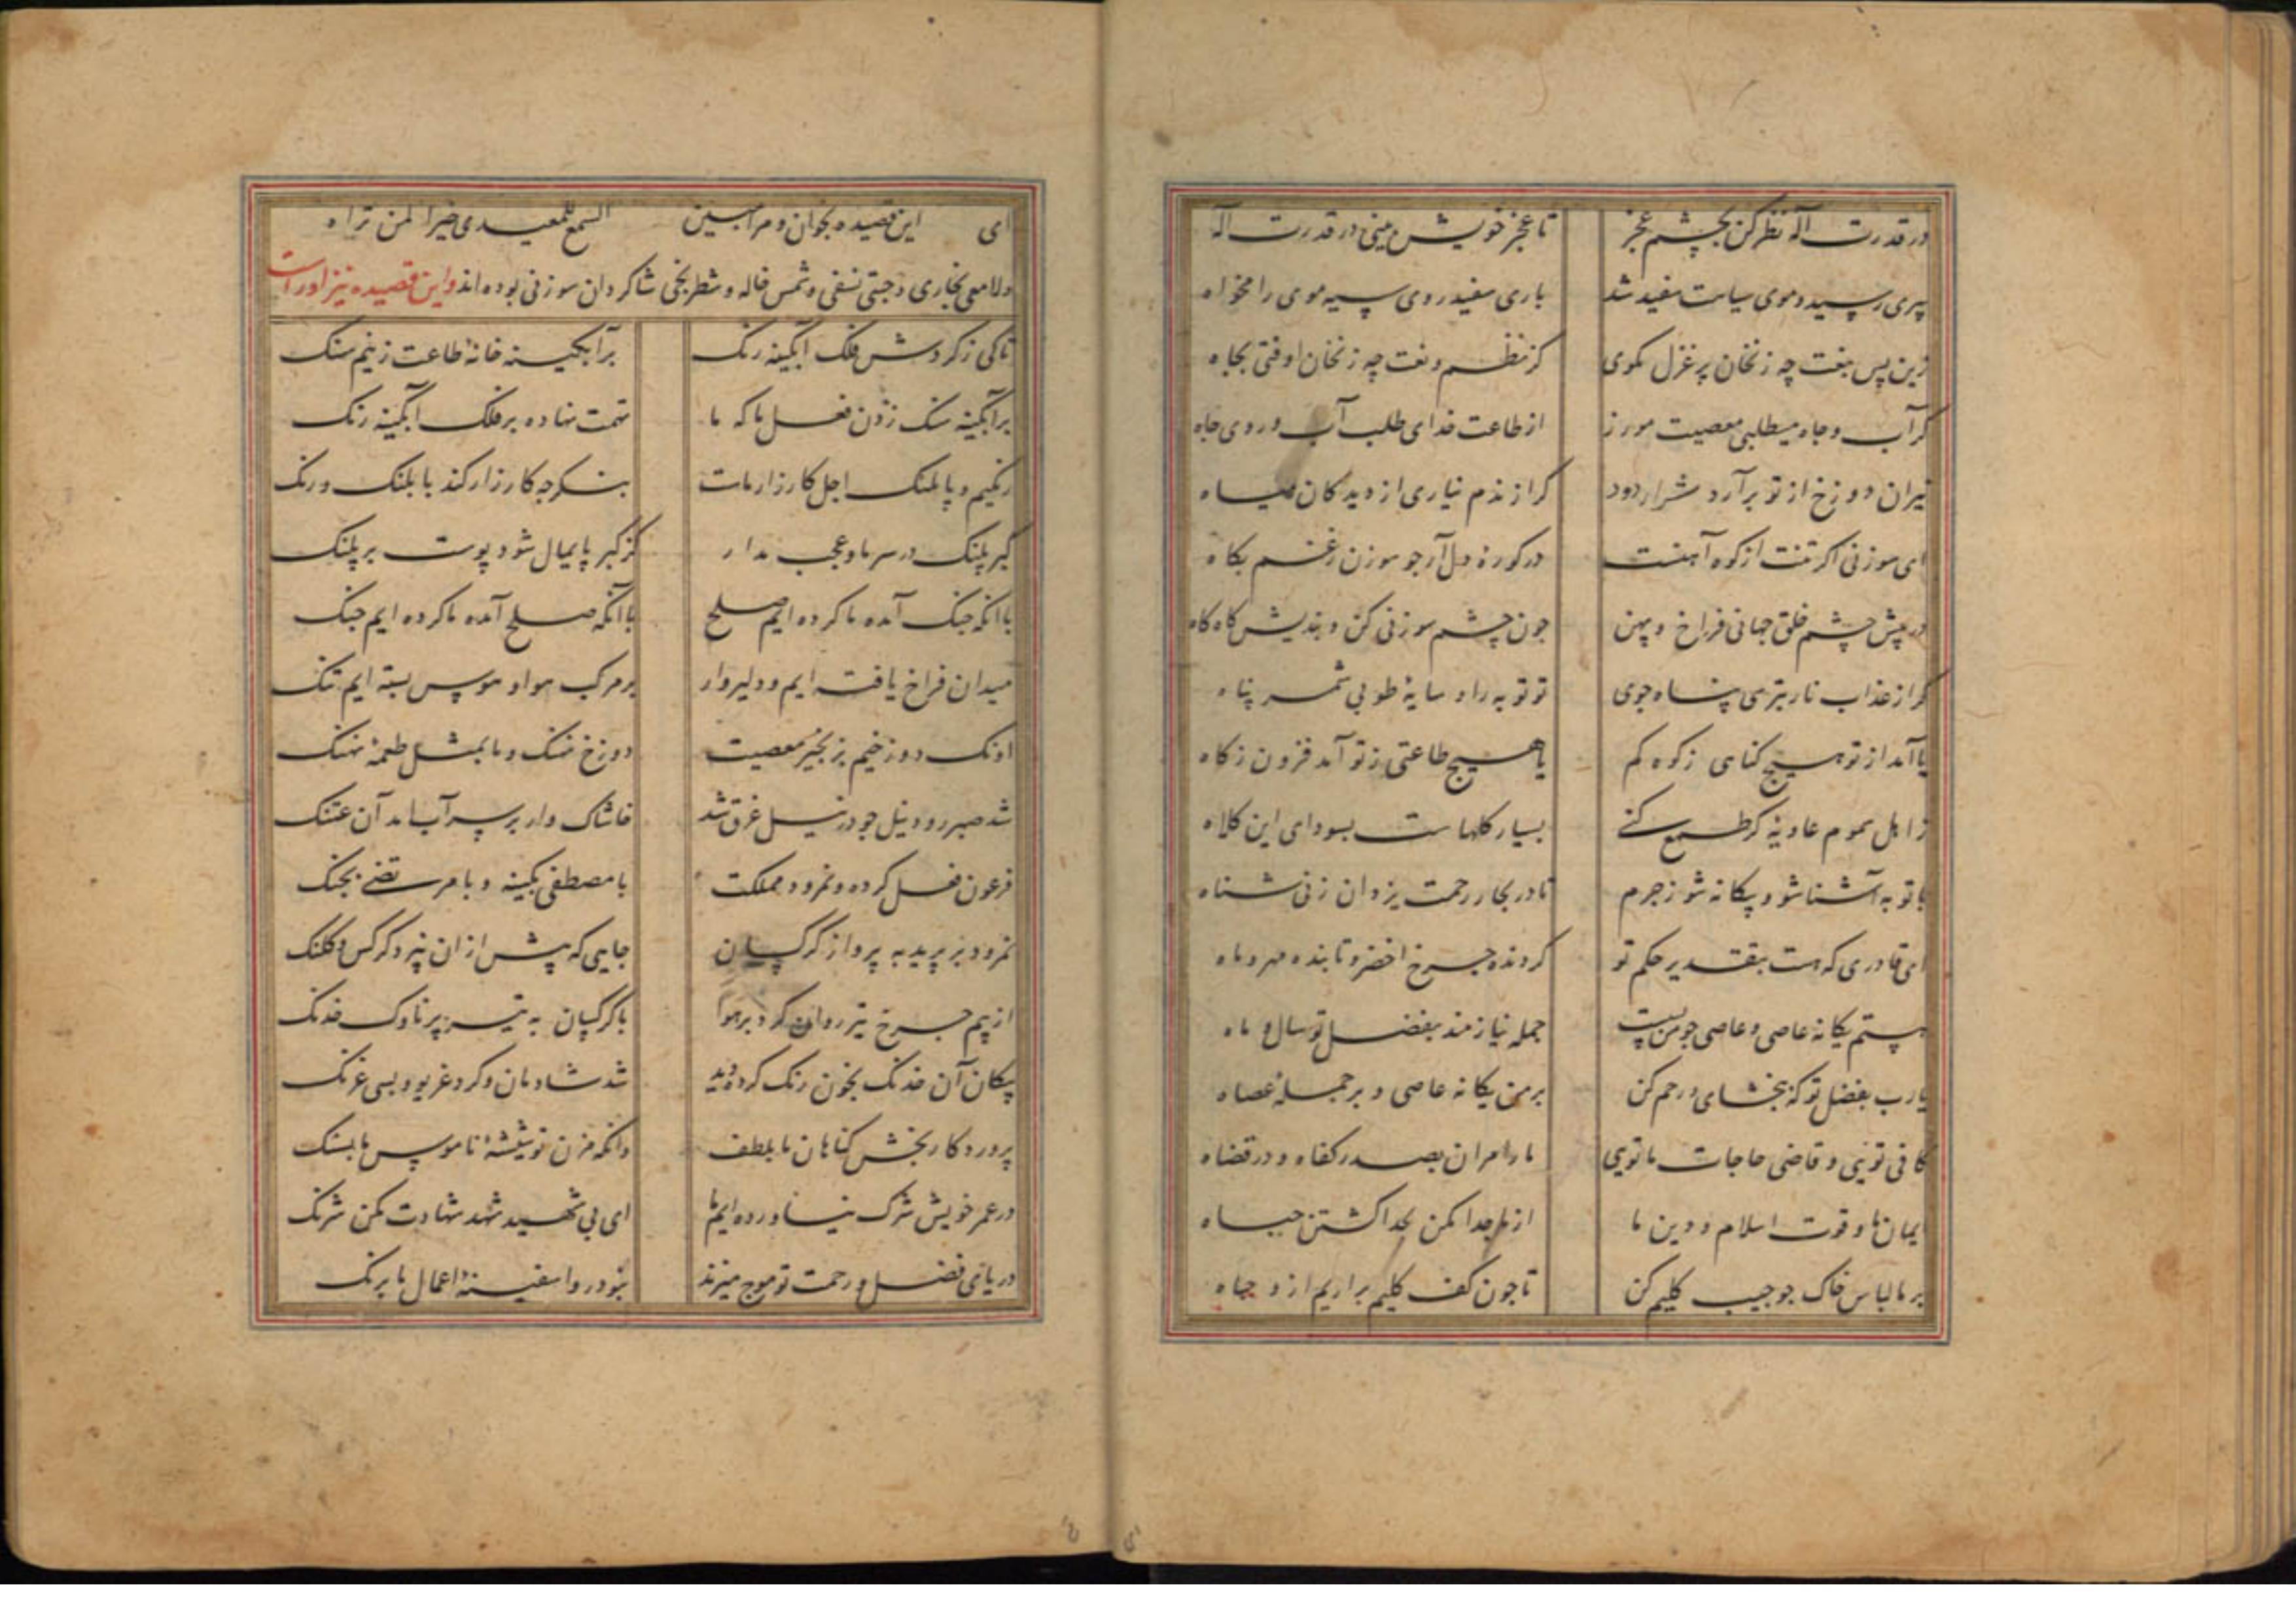 در قدرت اله نظر کن بچشم عجز تا عجز خویش بینی در قدرت اله
پیری رسید و موی سیاهت سفید شد باری سفید روی سیه موی را مخواه
زین پس بنعت چه زنخدان پر غزل مگوی کز نظم و نعت چه زنخدان اوفتی بجاه
گر آب و جاه میطلبی معصیت مورز از طاعت خدای طلب آب و روی جاه
نیران دوزخ از تو برآرد شرار دود گر از ندم نیاری از دیدگان میاه
ای سوزنی اگر تنت از کوه آهنست در کوره دل آر جو سوزن ز غم بکاه
در پیش چشم خلق جهانی فراخ و پهن جون چشم سوزنی کن و بندیش گاه گاه
گر از عذاب نار بترسی پناه جوی تو توبه را و سایه طوبی شمر پناه
یا آمد از تو هیچ گناهی ز کوه کم یا هیچ طاعتی ز تو آمد فزون ز کاه
ز اهل سموم هاویه گر طمع کنی بسیار کلهاست بسودای این کلاه
با توبه آشنا شو و بیگانه شو ز جرم تا در بحار رحمت یزدان زنی شناه
ای قادری که هست بتقدیر حکم تو گردنده جرخ اخضر و تابنده مهر و ماه
هستم یگانه عاصی و عاصی جو من بسیست جمله نیازمند بفضل تو سال و ماه
یارب بفضل تو که ببخشای و رحم کن بر من یگانه عاصی و بر جمله عصاه
کافی تویی و قاضی حاجات ما تویی ما را مران بصدر کفاه و در قضاه
ایمان ما و قوت اسلام و دین ما از ما جدا مکن بجدا گشتن حیاه
بر ما لباس خاک جو جیب کلیم کن تا جون کف کلیم برآریم ازو جباه
ای این قصیده بخوان و مرا ببین السمع للمعیدی خیرا لمن تراه
و لامعی بخاری و جنتی نسفی و شمس خاله و شطرنجی شاگردان سوزنی بوده اند و این قصیده نیز اوراست
تا کی ز گردش فلک آبگینه رنگ بر آبگینه خانه طاعت زنیم سنگ
بر آبگینه سنگ زدن فعل ما که ما تهمت نهاده بر فلک آبگینه رنگ
رنگیم و با پلنگ اجل کارزار ماست بنگر چه کارزار کند با پلنگ و رنگ
کبر پلنگ در سر ما و عجب مدار کز کبر پایمال شود پوست بر پلنگ
با آنکه جنگ آمده ما کرده ایم صلح با آنکه صلح آمده ما کرده ایم جنگ
میدان فراخ یافته ایم و دلیروار بر مرکب هوا و هوس بسته ایم تنگ
اونگ دوزخیم بزنجیر معصیت دوزخ نهنگ و ما بمثل طعمه نهنگ
شد صبر رود نیل جو در نیل غرق شد خاشاک وار بر سر آب آمد آن
فرعون فعل کرده و نمرود مملکت با مصطفی بکینه و با مرتضی بجنگ
نمرود بر پرید به پرواز کرکسان جایی که پیش ازان نپرد کرکس و کلنگ
از بیم جرخ تیر روان کرد بر هوا با کرکسان به تیز پر ناوک خدنگ
پیکان آن خدنگ بخون رنگ کرده دید شد شادمان و کرد غریو و بسی غرنگ
پروردگار بخش گناهان ما بلطف وانگه مزن تو شیشه ناموس ما بسنگ
در عمر خویش شرک نیاورده ایم ما ای بی شهید شهد شهادت مکن شرنگ
دریای فضل و رحمت تو موج میزند بود روا سفینه اعمال ما